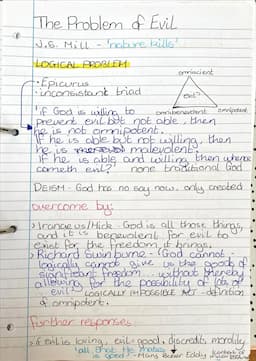 The Problem of Evil
J.S. Mill - 'nature kills'
LOGICAL PROBLEM
omniscient
• Epicurus
• inconsistent triad
evil?
omnibenevolent
omnipotent
"if God is willing to
prevent evil but not able, then
he is not omnipotent.
If he is able but not willing, then
he is malevolent.
If he is able and willing, then whence
cometh evil?
none traditional God
DEISM - God has no say now, only created
overcome by:
> Iranaeus/Hick - God is all those things,
and it is benevolent for evil to
exist for the freedom it brings.
> Richard Swinburne - "God cannot -
logically cannot give us the goods of
significant freedom ... without thereby
allowing for the possibility of lots of
evil" - LOGICALLY IMPOSSIBLE ACT - definition
of omnipotent.
further responses
if evil is loving, evil = good, discredits morality
"all that He makes
is good" - Mary Baker Eddy